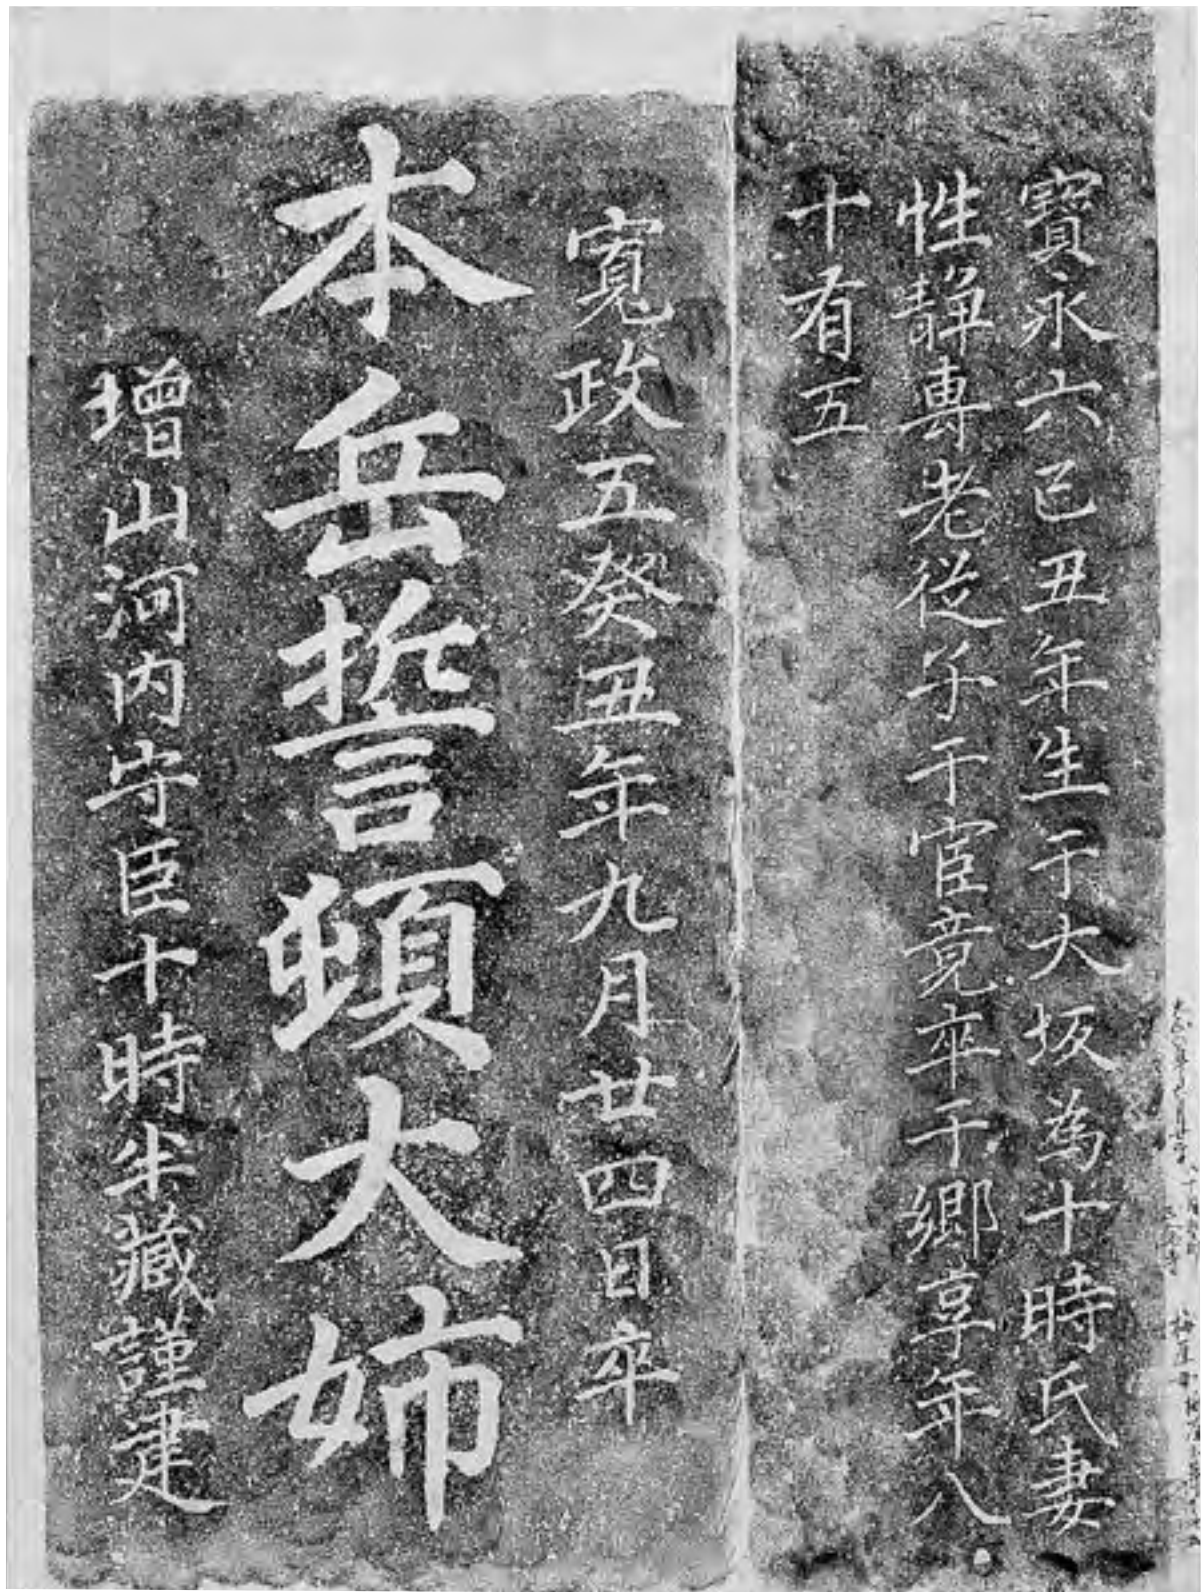 寶永六己丑年生于大坂為十時氏妻
性静專老従子于宦竟卒于郷享年八
十有五
寛政五癸丑年九月廿四日卒
本岳誓頓大姉
増山河内守臣十時半藏謹建